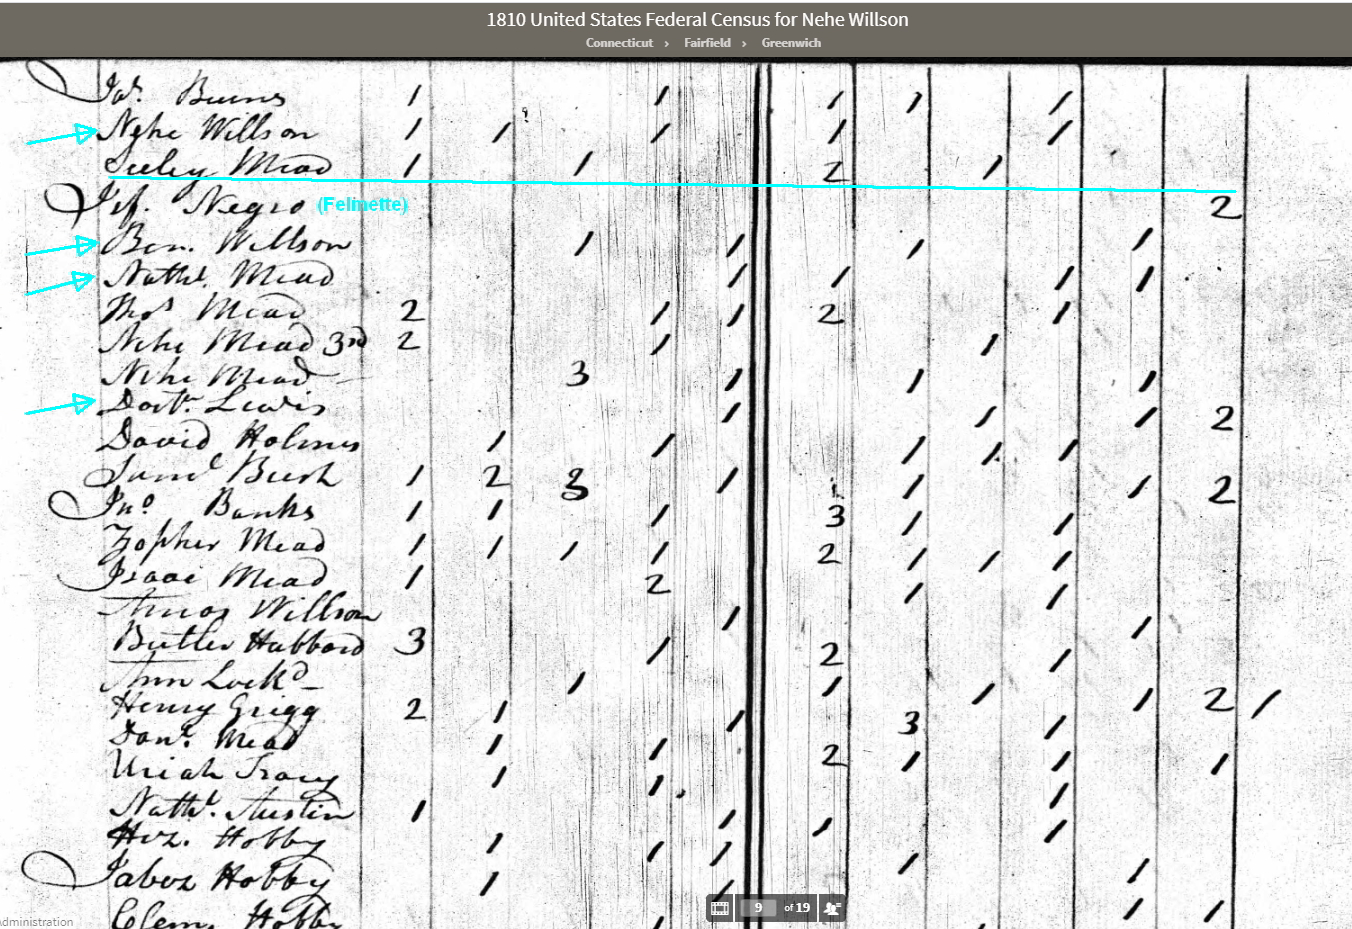 1810 United States Federal Census for Nehe Willson
Connecticut › Fairfield › Greenwich
Jas. Burns 1 1 1 1 1
Nehe Willson 1 1 1 1 1
Seeley Mead 1 1 2 1
Jef. Negro (Felmette) 2
Ben. Willson 1 1 1 1
Nathl. Mead 1 1 1 1
Thos Mead 2 1 1 2 1
Nehe Mead 3rd 2 1 1
Nehe Mead 3 1 1 1
Doctr. Lewis 1 1 1 2
David Holmes 1 1 1 1 1
Saml Bush 1 2 3 1 1 1 1 2
Jno. Banks 1 1 1 3 1 1
Zopher Mead 1 1 1 1 2 1 1 1
Isaac Mead 1 2 1 1
Amos Willson 1 1
Butler Hubbard 3 1 2 1
Ann Lockd 1 1 1 1 2 1
Henry Grigg 2 1 1 3 1
Danl. Mead 1 1 2 1 1 1
Uriah Tracy 1 1 1
Nathl. Austin 1 1 1 1
Hez. Hobby 1 1 1 1 1
Jabez Hobby 1 1 1 1
Clem Hobby
9 of 19
dministration